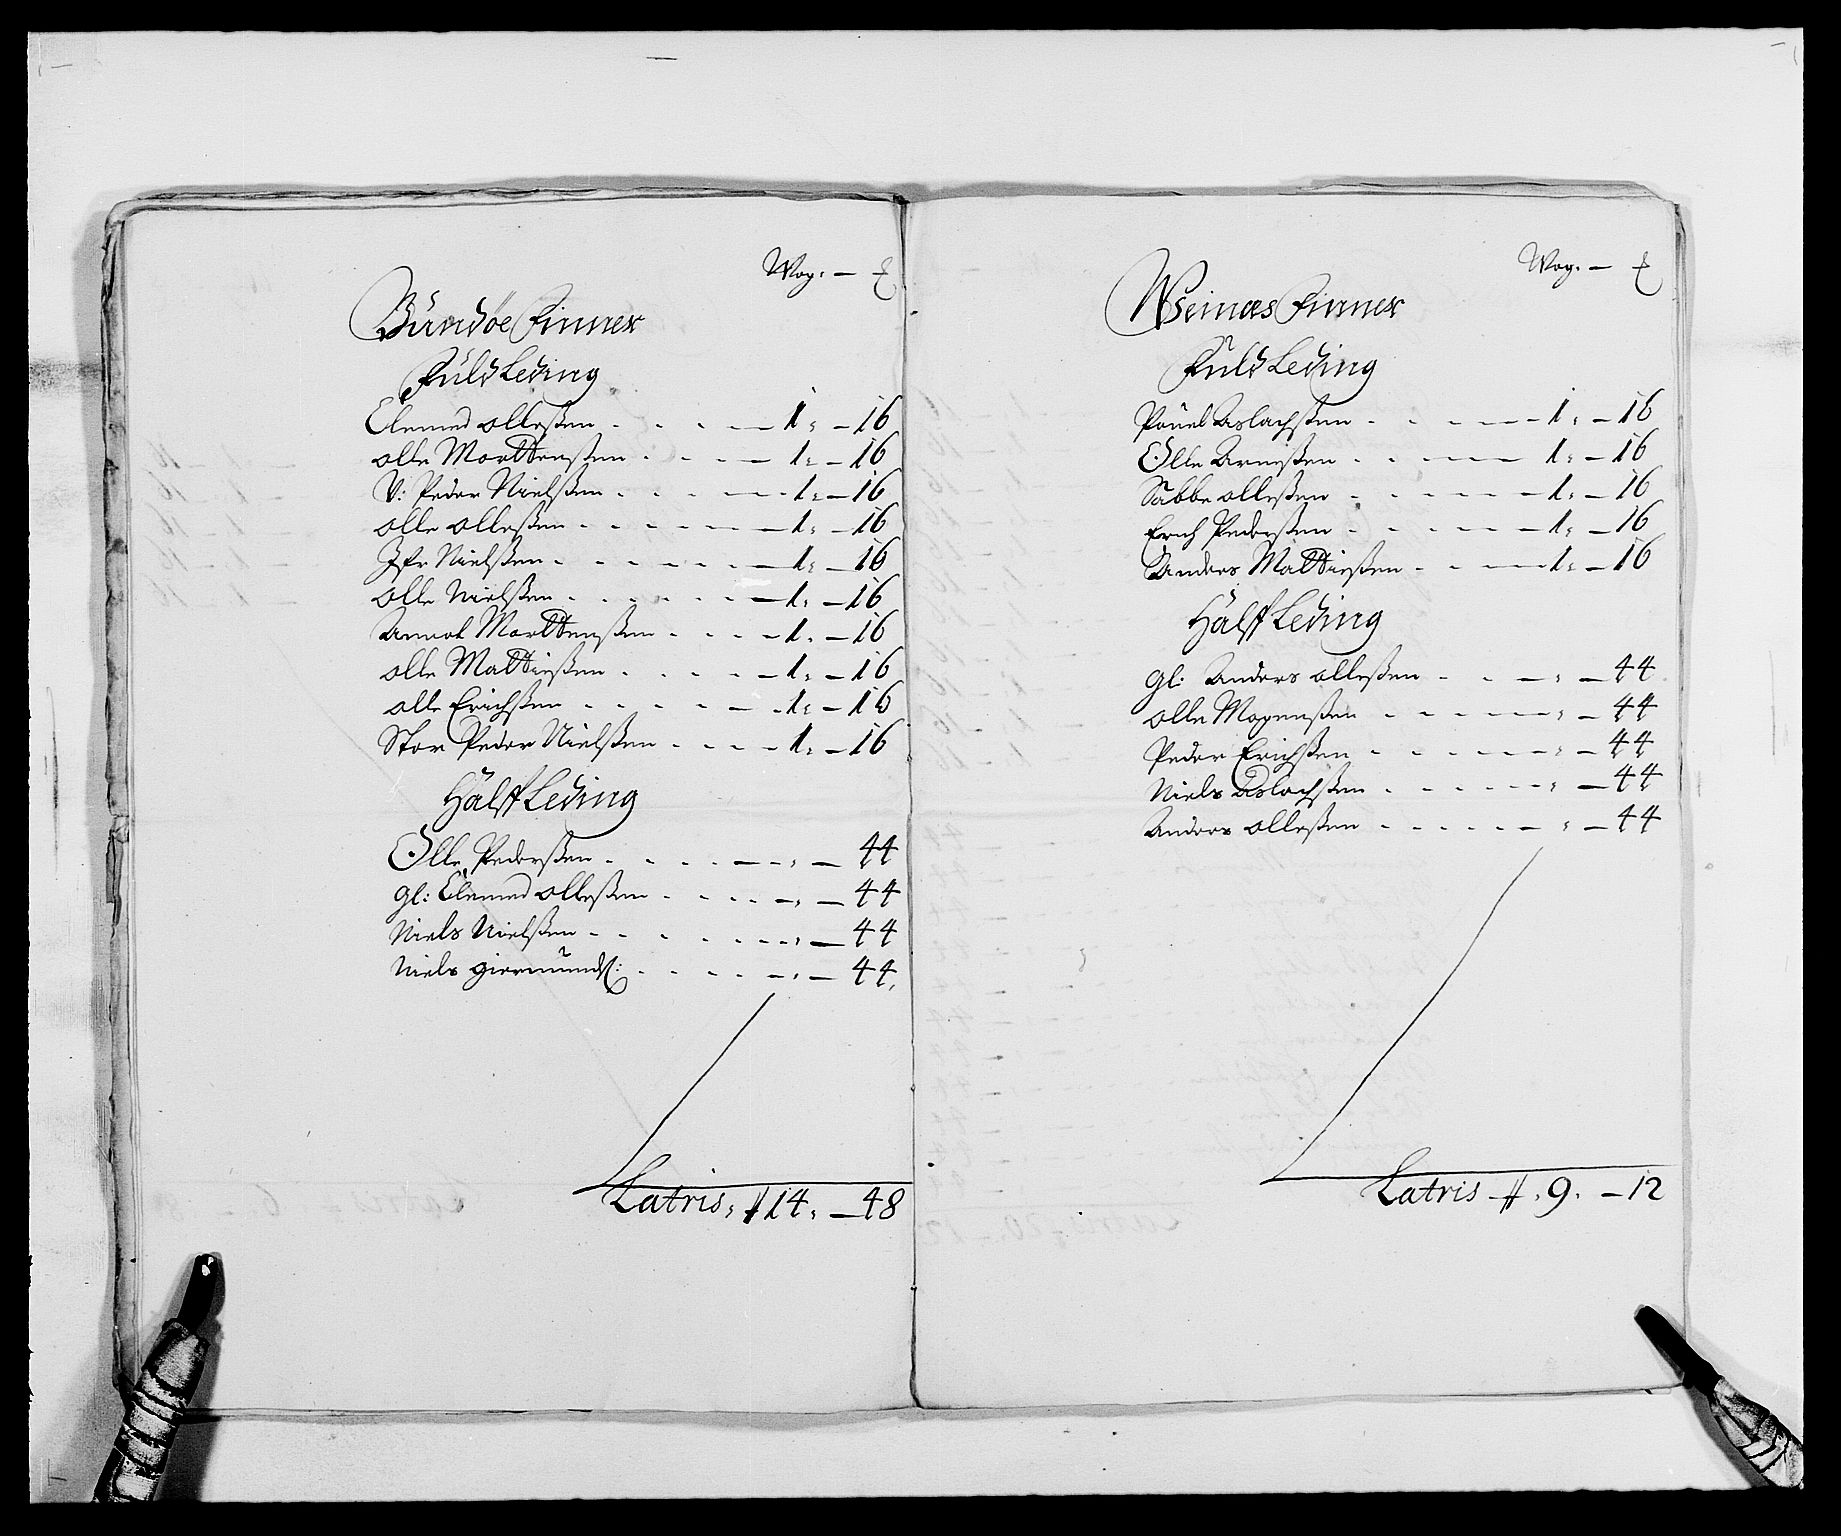 Wog. — ℔
Bundøe Finner
Fuld Leding
Clemed Olleßen . . . . — 1: — 16
Olle Morttenßen . . . — 1: — 16
V: Peder Nielßen . . . — 1: — 16
Olle Olleßen . . . . . — 1: — 16
Ifr Nielßen . . . . . — 1: — 16
Olle Nielßen . . . . . — 1: — 16
Amot Morttenßen . . . — 1. — 16
Olle Mattisßen . . . . — 1: — 16
Olle Erichßen . . . . . — 1: — 16
Stor Peder Nielßen . . . — 1: — 16
Halff Leding
Olle Pederßen . . . . — : — 44
gl: Clemed Olleßen . . . . — : — 44
Niels Nielßen . . . . . — : — 44
Niels Giermundß: . . . . — : — 44.
Latris: # 14: — 48
Wog. — ℔
Weines Finner
Fuld Leding
Pouel Aslachßen . . . . — 1: — 16
Olle Arneßen . . . . — 1: — 16
Sabbe Olleßen . . . . — 1: — 16
Erich Pederßen . . . . — 1: — 16
Anders Mattisßen . . . — 1: — 16
Halff Leding
gl: Anders Olleßen . . . — : — 44
Olle Mogenßen . . . . — : — 44
Peder Erichßen . . . . — : — 44
Niels Aslachßen . . . . — : — 44
Anders Olleßen . . . . — : — 44
Latris # : 9. — 12